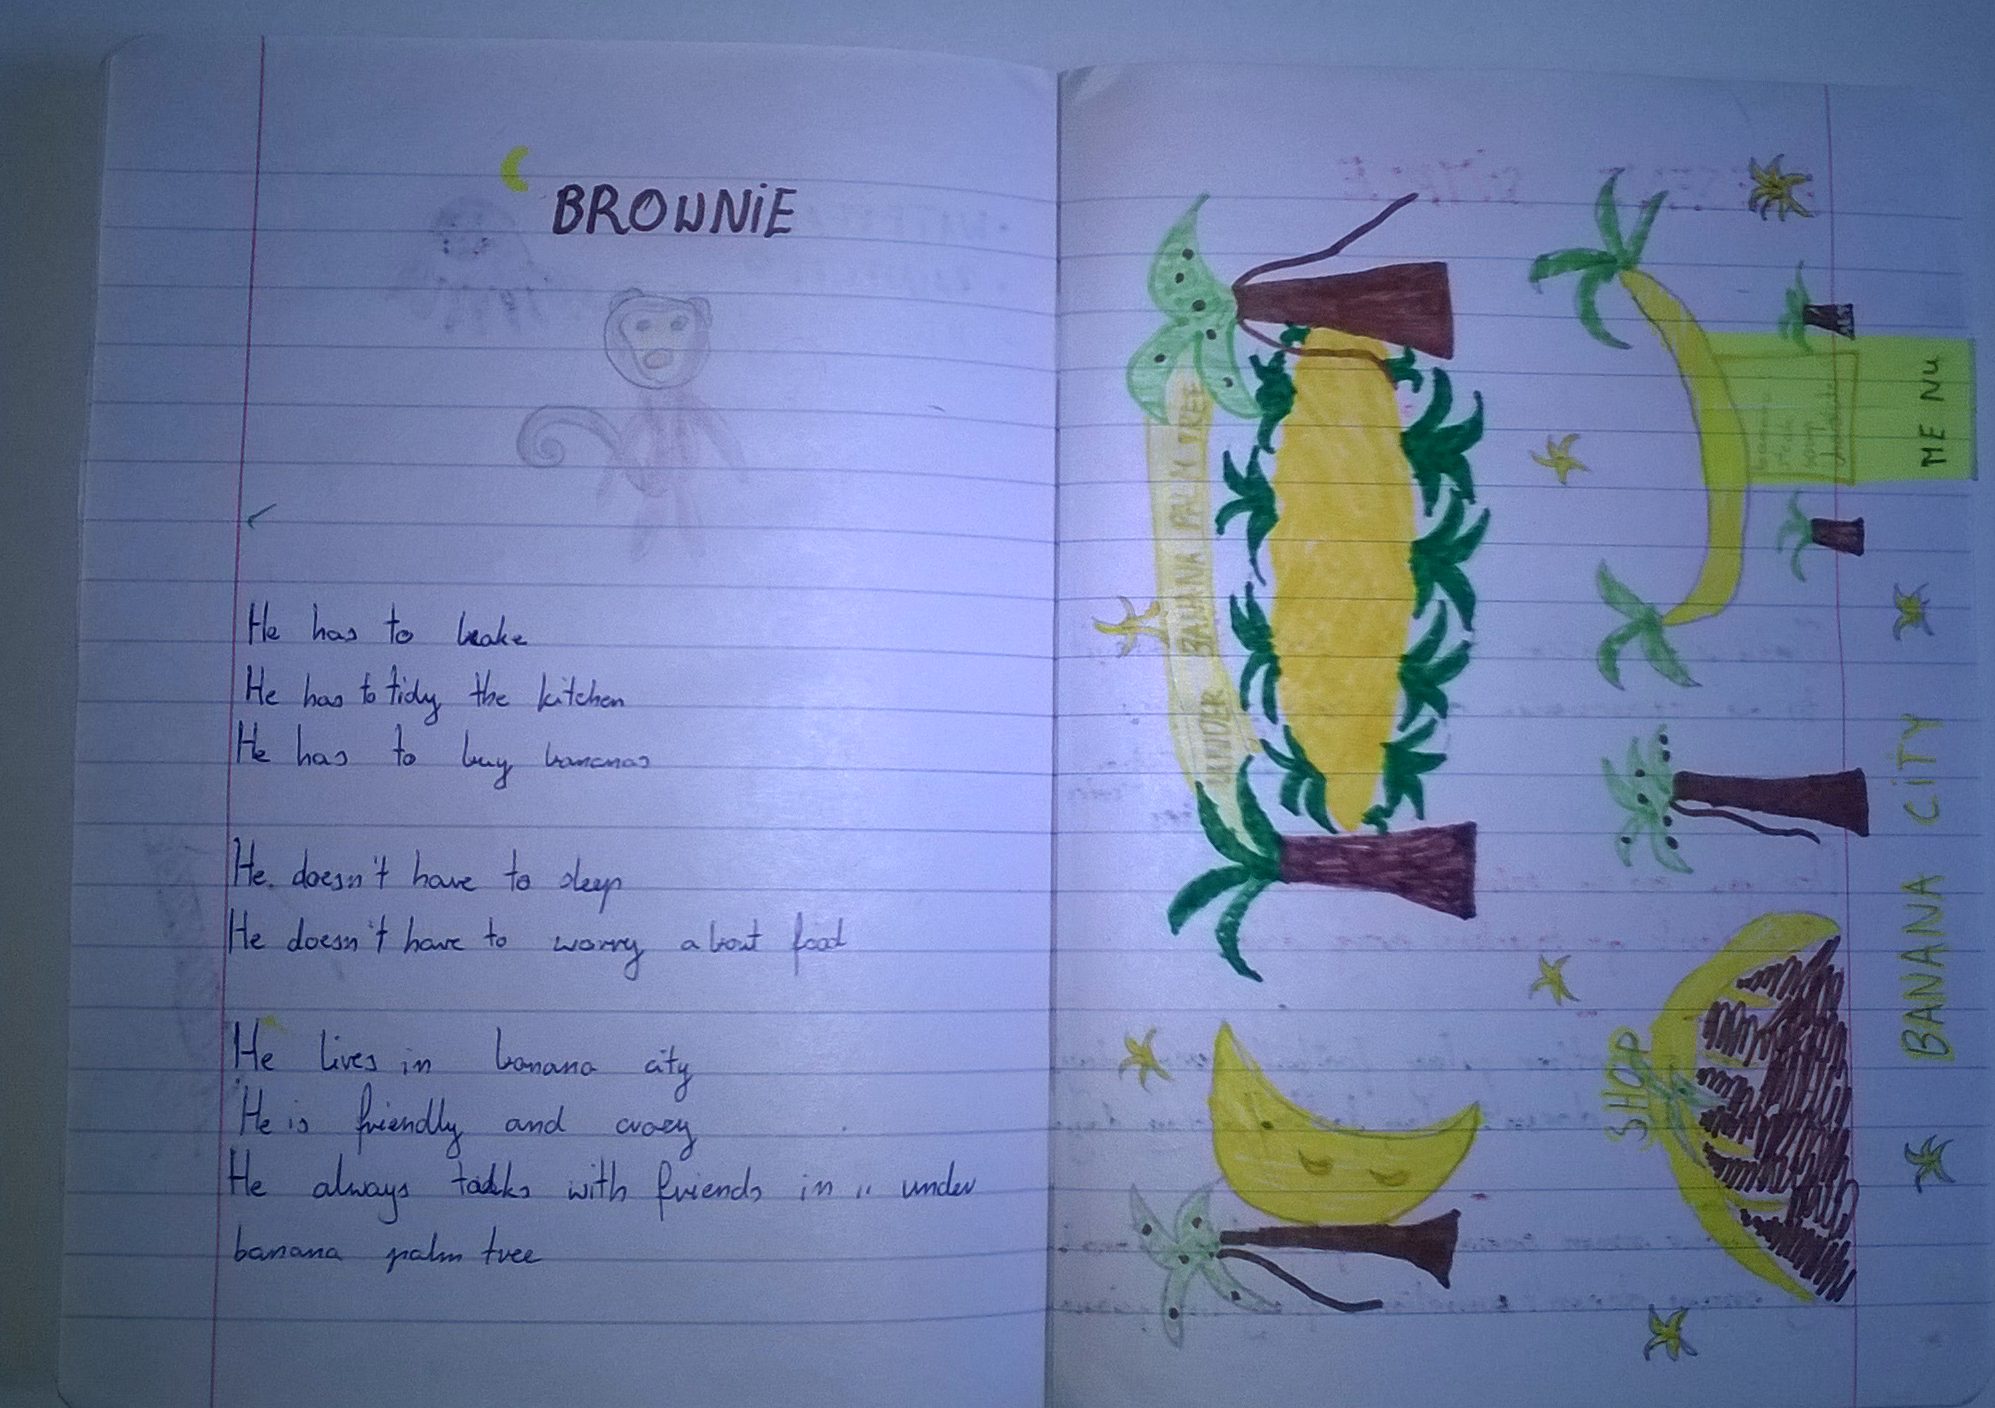 BROWNiE
He has to bake
He has to tidy the kitchen
He has to buy bananas
He doesn't have to sleep
He doesn't have to worry about food
He lives in banana city
He is friendly and crazy
He always talks with friends in " under
banana palm tree
UNDER BANANA PALM TREE
ME NU
SHOP
BANANA CiTY